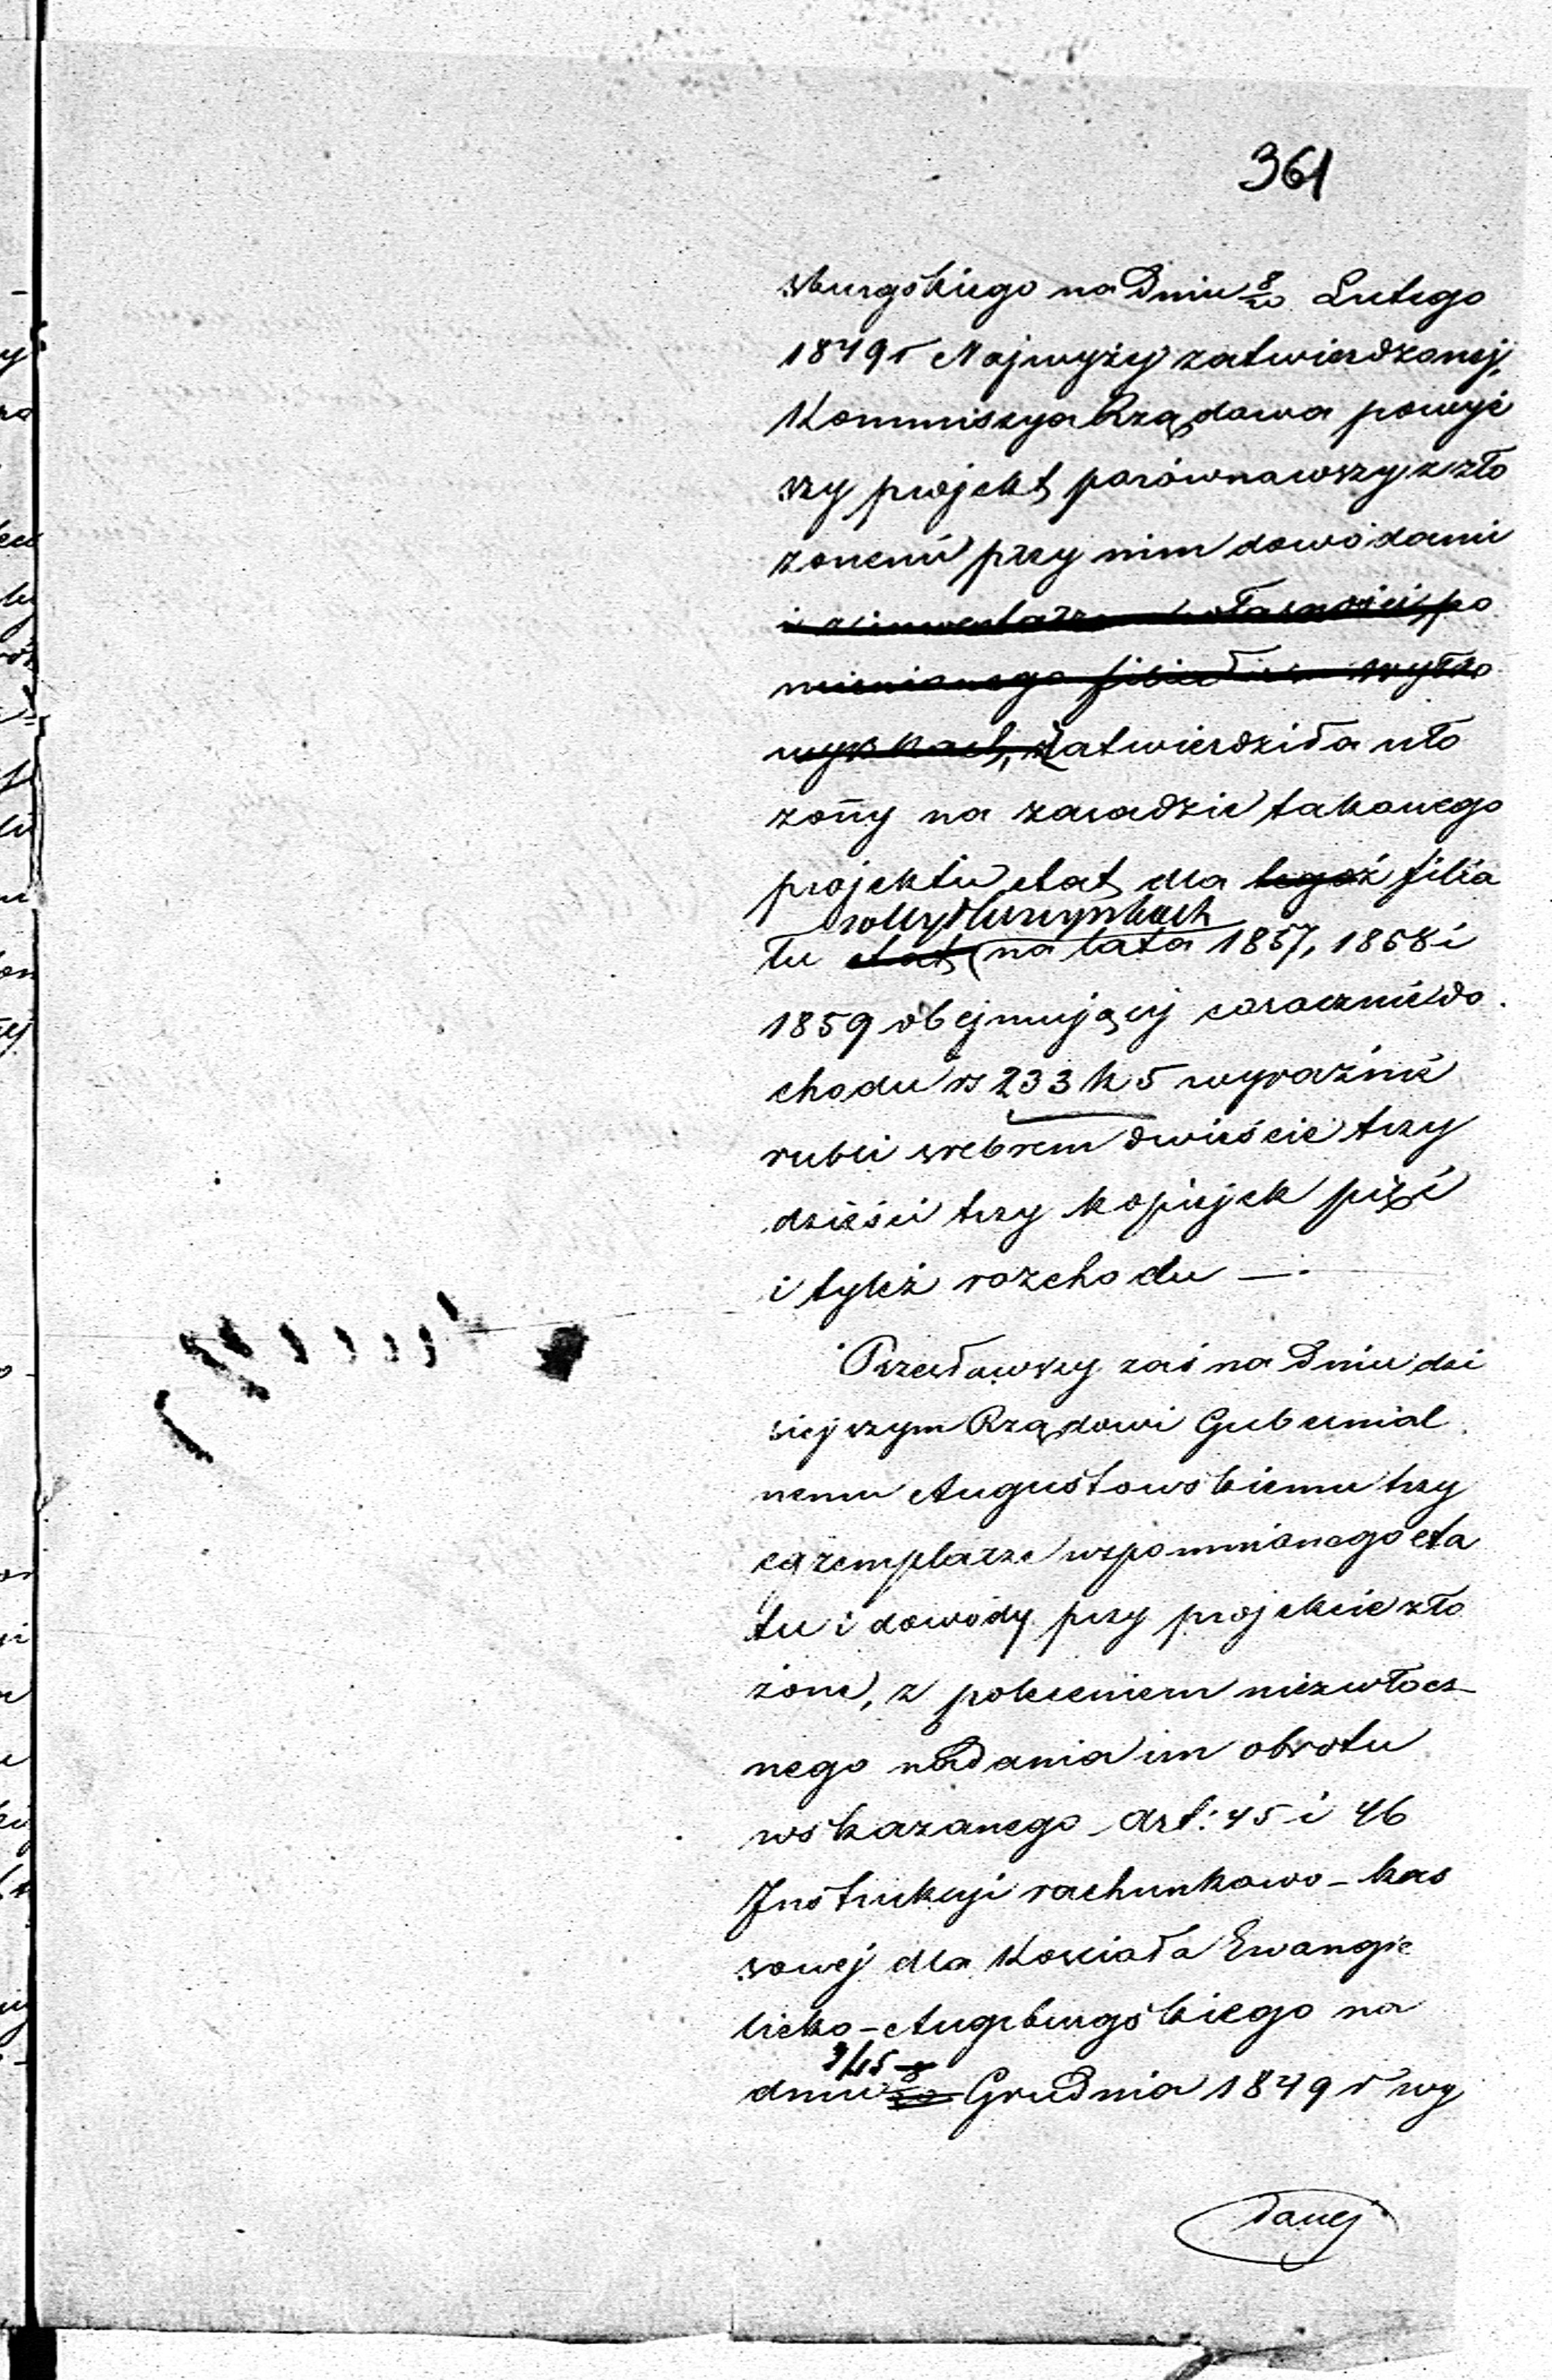 361
sburgskiego na Dniu 8/20 Lutego
1849 r Najwyżej zatwierdzonej,
Kommissya Rządowa powyż
szy projekt porównawszy z zło
żonemi przy nim dowodami
i z inwentarzem własności po
mienionego filiału w
zatwierdziła uło
żony na zasadzie takowego
projektu etat dla tegoż filia
w Wyżłuszynkach
łu etat na lata 1857, 1858 i
1859 obejmujący corocznie do
chodu rs 233 k 5 wyraźnie
rubli srebrem dwieście trzy
dzieści trzy kopiejek pięć
i tyleż rozchodu —
Przesławszy zaś na Dniu dzi
siejszym Rządowi Gubernial
nemu Augustowskiemu trzy
egzemplarze wspomnionego eta
tu i dowody przy projekcie zło
żone, z poleceniem niezwłocz-
nego nadania im obrotu
wskazanego Art: 45 i 46
Instrukcyi rachunkowo-kas
sowej dla Kościoła Ewangie
licko-Augsburgskiego na
3/15
dniu Grudnia 1849 r wy
danej